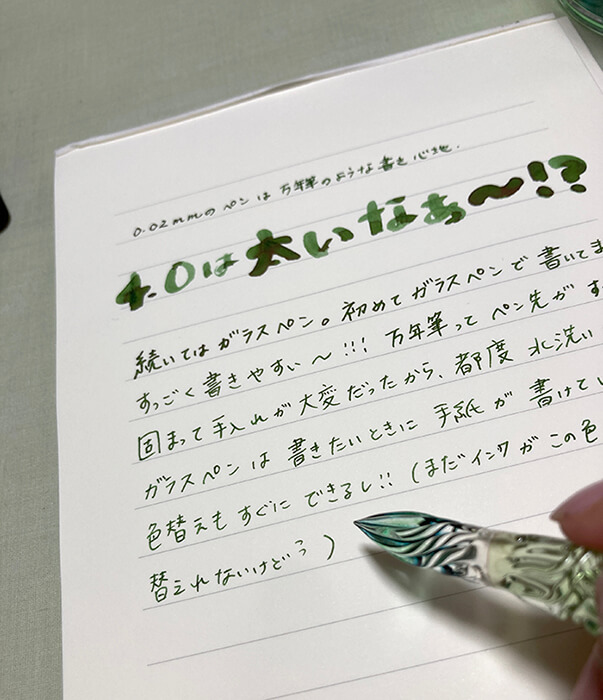 0.02mmのペンは万年筆のような書き心地.
4.0は太いなぁ〜!?
続いてはガラスペン。初めてガラスペンで書いてま
すっごく書きやすい〜!!! 万年筆ってペン先がす
固まって手入れが大変だったから、都度水洗い
ガラスペンは書きたいときに手紙が書けてい
色替えもすぐにできるし!!(まだインクがこの色
替えれないけどう)